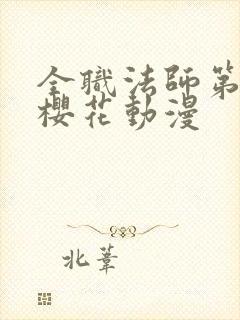 全職法師第
櫻花動漫
北葦